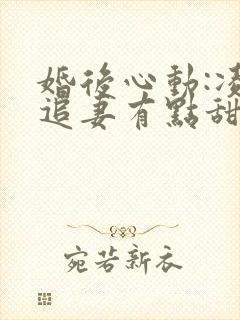 婚後心動:凌
追妻有點甜
宛若新衣